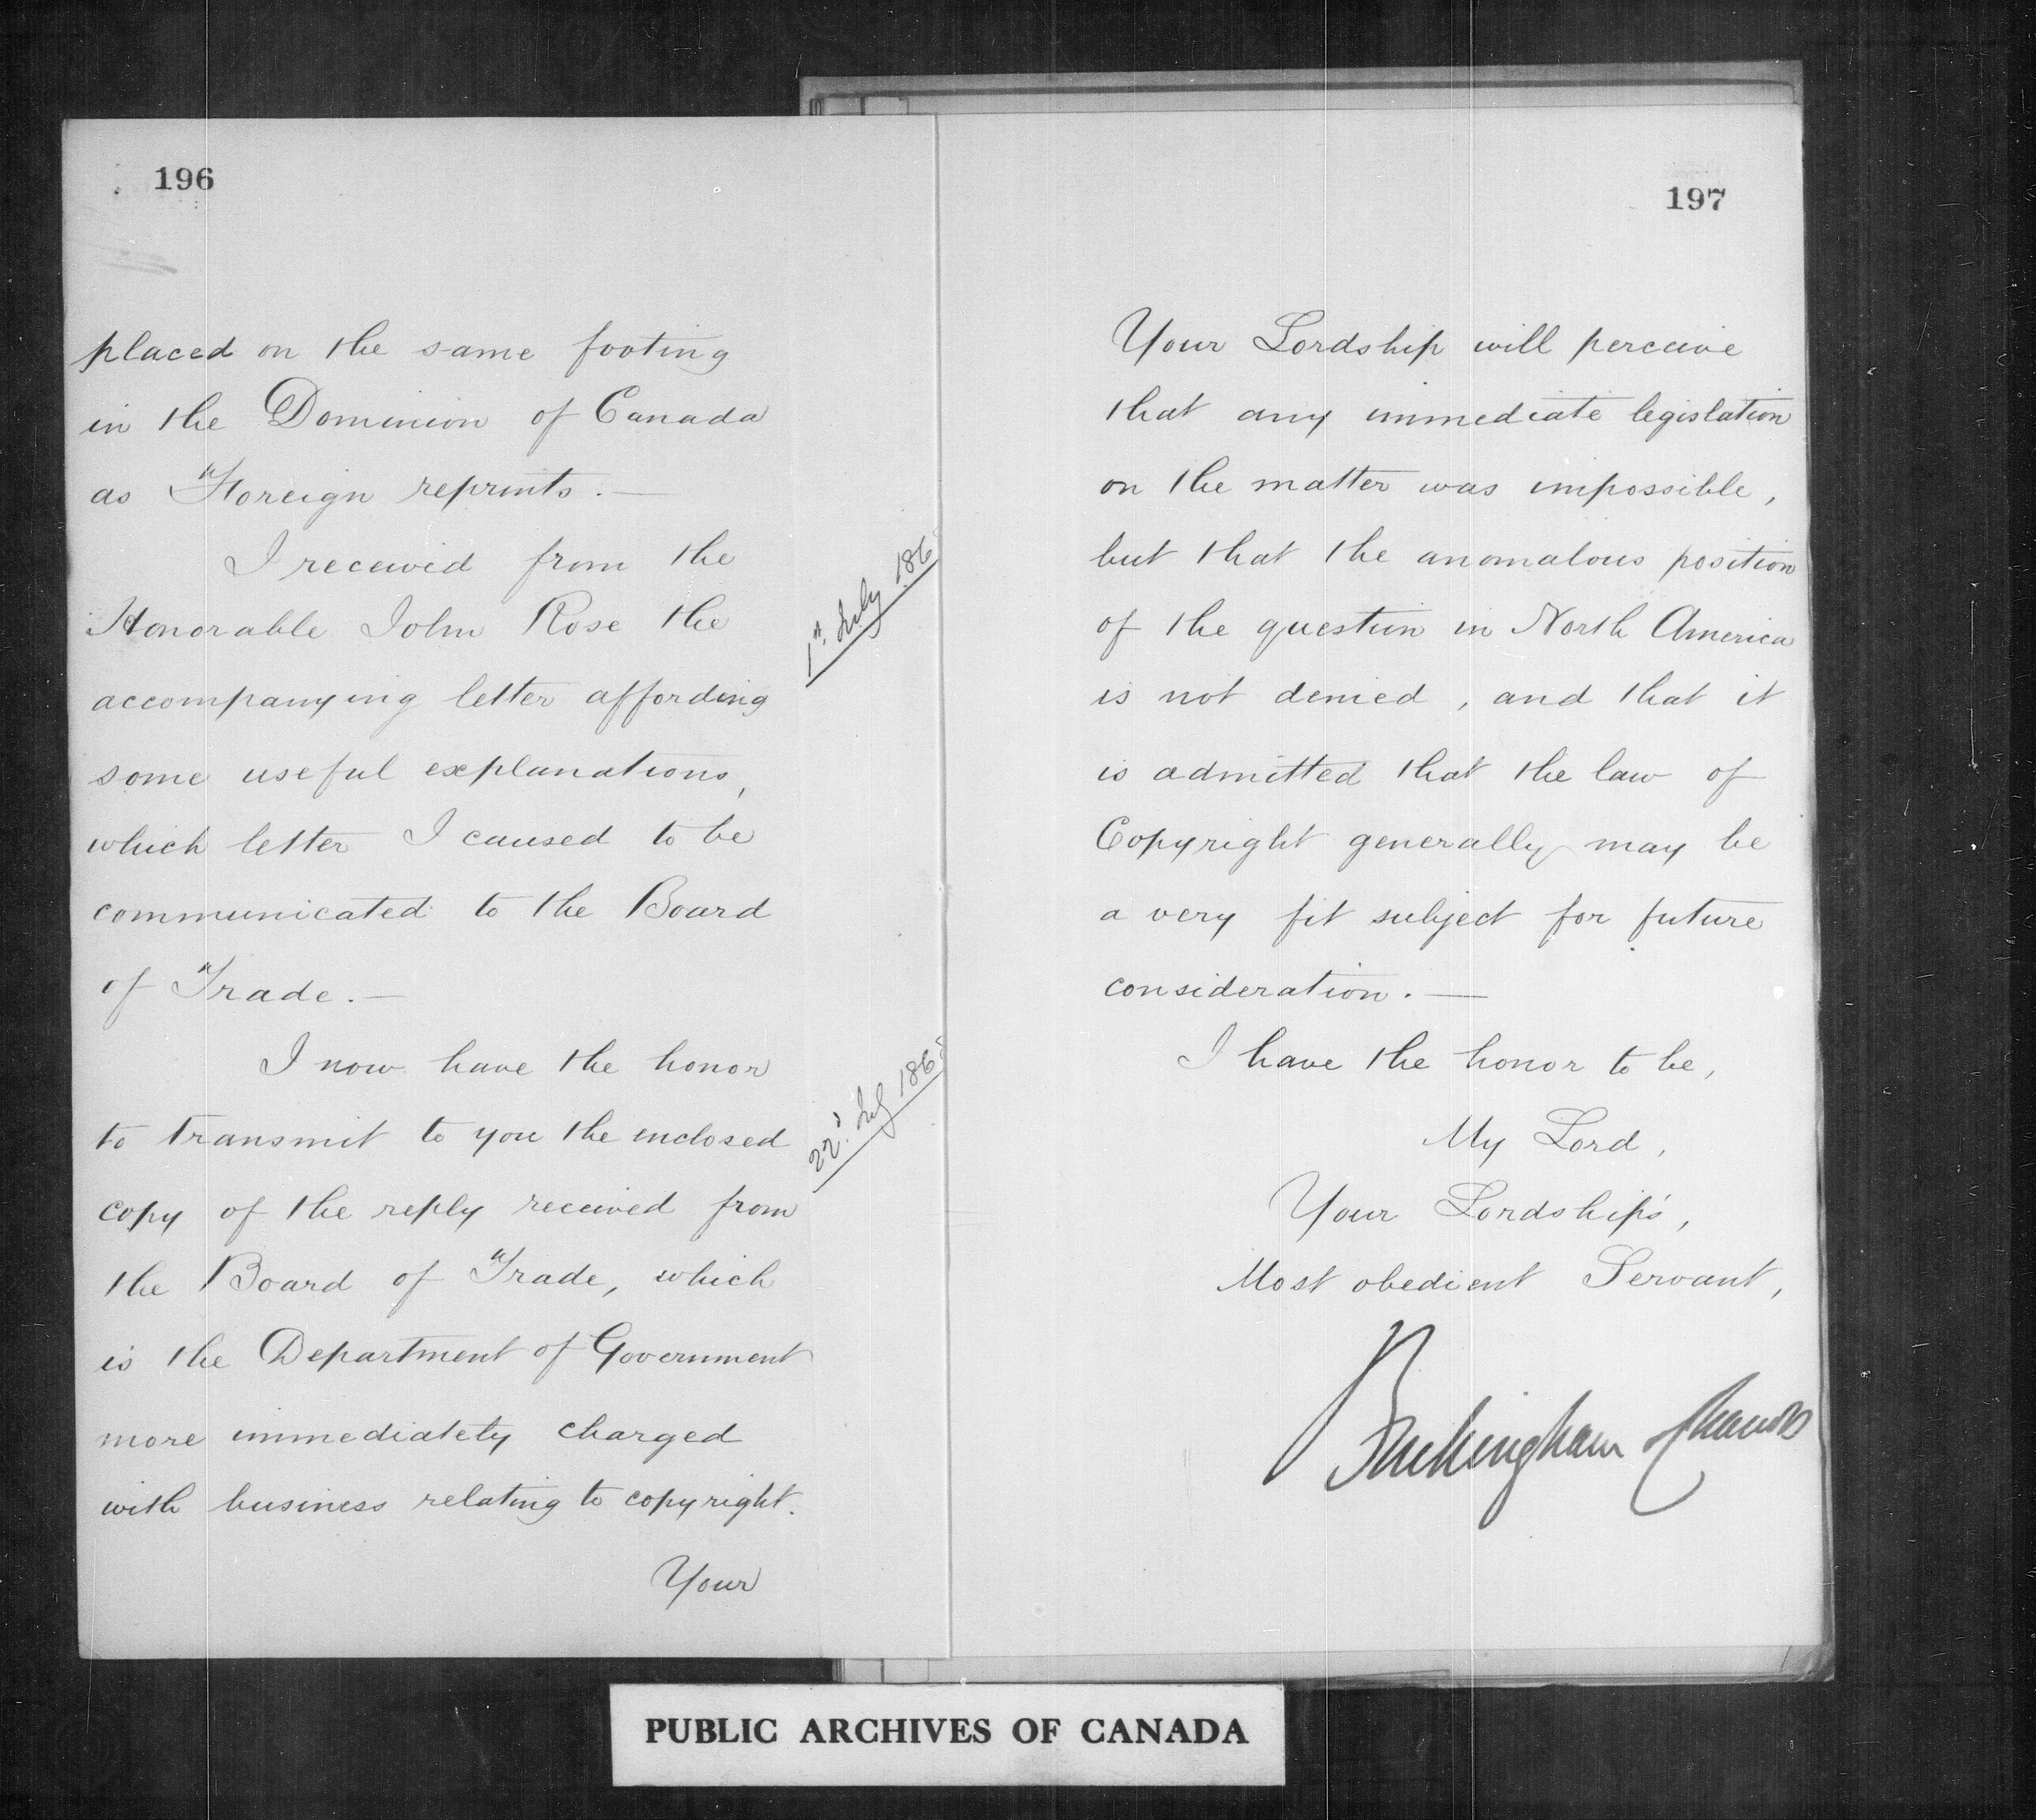 196
placed on the same footing
in the Dominion of Canada
as Foreign reprints. —
I received from the
Honorable John Rose the
accompanying letter affording
some useful explanations,
which letter I caused to be
communicated to the Board
of Trade. —
I now have the honor
to transmit to you the enclosed
copy of the reply received from
the Board of Trade, which
is the Department of Government
more immediately charged
with business relating to copyright.
Your
1st. July 186
22d. July 186
197
Your Lordship will perceive
that any immediate legislation
on the matter was impossible,
but that the anomalous position
of the question in North America
is not denied, and that it
is admitted that the law of
Copyright generally may be
a very fit subject for future
consideration. —
I have the honor to be,
My Lord,
Your Lordship's,
Most obedient Servant,
Buckingham & Chandos
PUBLIC ARCHIVES OF CANADA